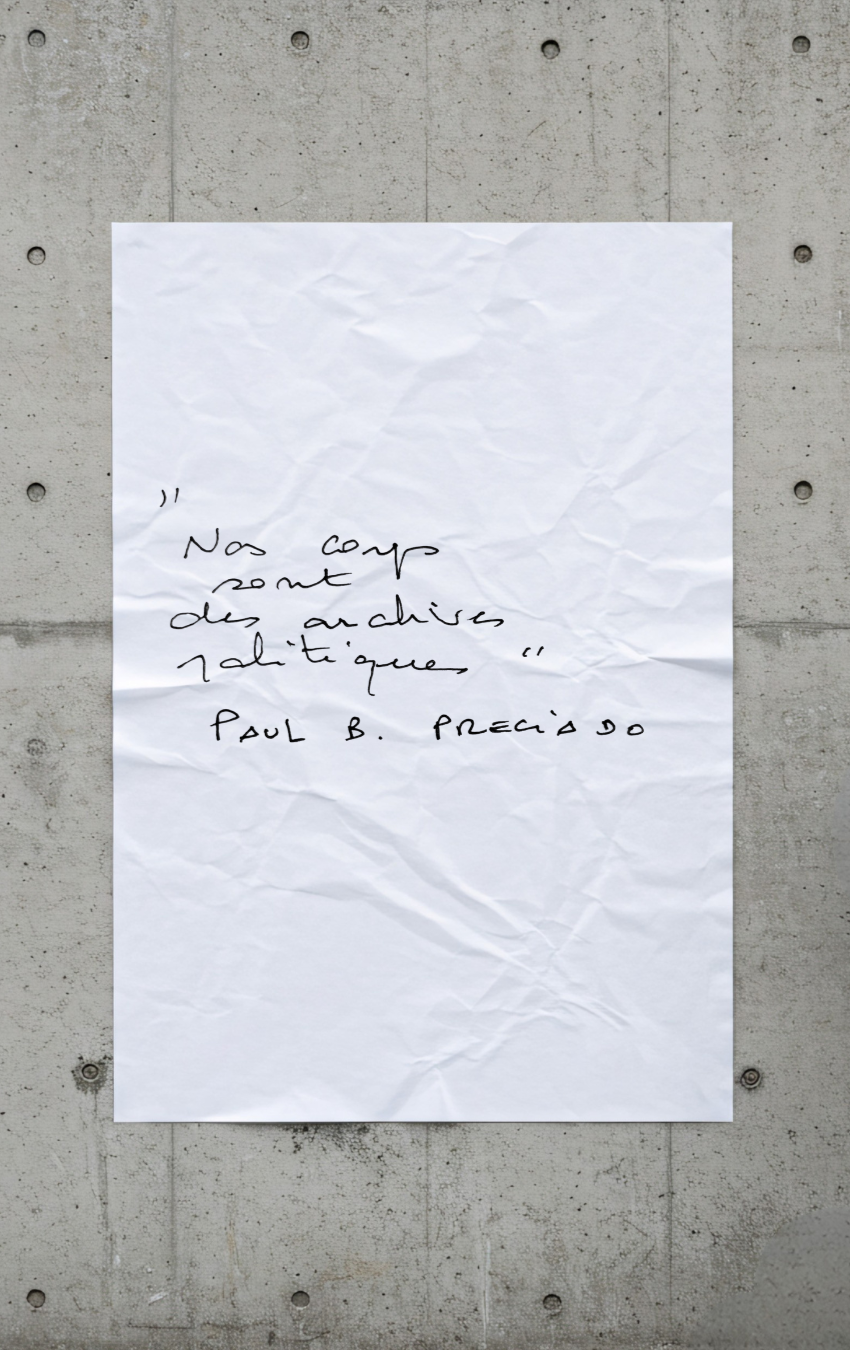 "
Nos corps
sont
des archives
politiques "
PAUL B. PRECIADO